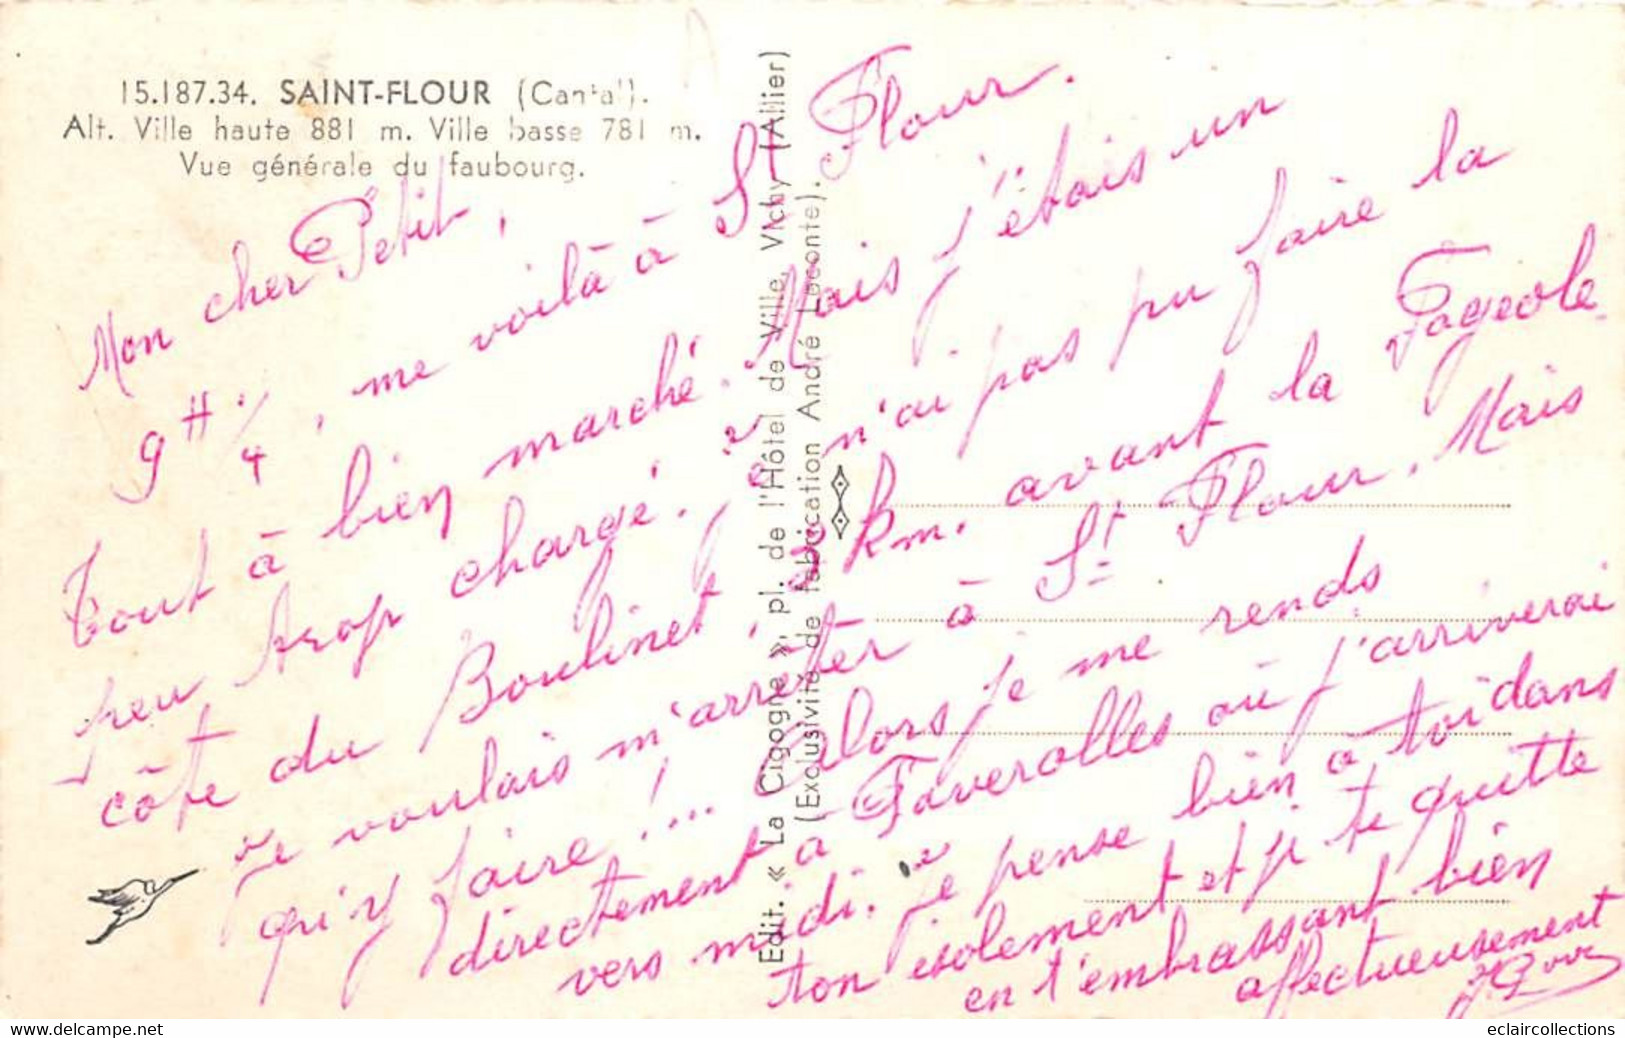 15.187.34. SAINT-FLOUR (Cantal).
Alt. Ville haute 881 m. Ville basse 781 m.
Vue générale du faubourg.
Edit. « La Cigogne », pl. de l'Hôtel de Ville, Vichy (Allier)
(Exclusivité de fabrication André Leconte).
Mon cher Petit,
9H 1/4, me voilà à St Flour.
Tout à bien marché. Mais j'étais un
peu trop chargé. Je n'ai pas pu faire la
côte du Boulinet, 2 km. avant la Fageole.
Je voulais m'arrêter à St Flour. Mais
qu'y faire!... Alors je me rends
directement à Faverolles où j'arriverai
vers midi. Je pense bien à toi dans
ton isolement et je te quitte
en t'embrassant bien
affectueusement
eclaircollections
www.delcampe.net